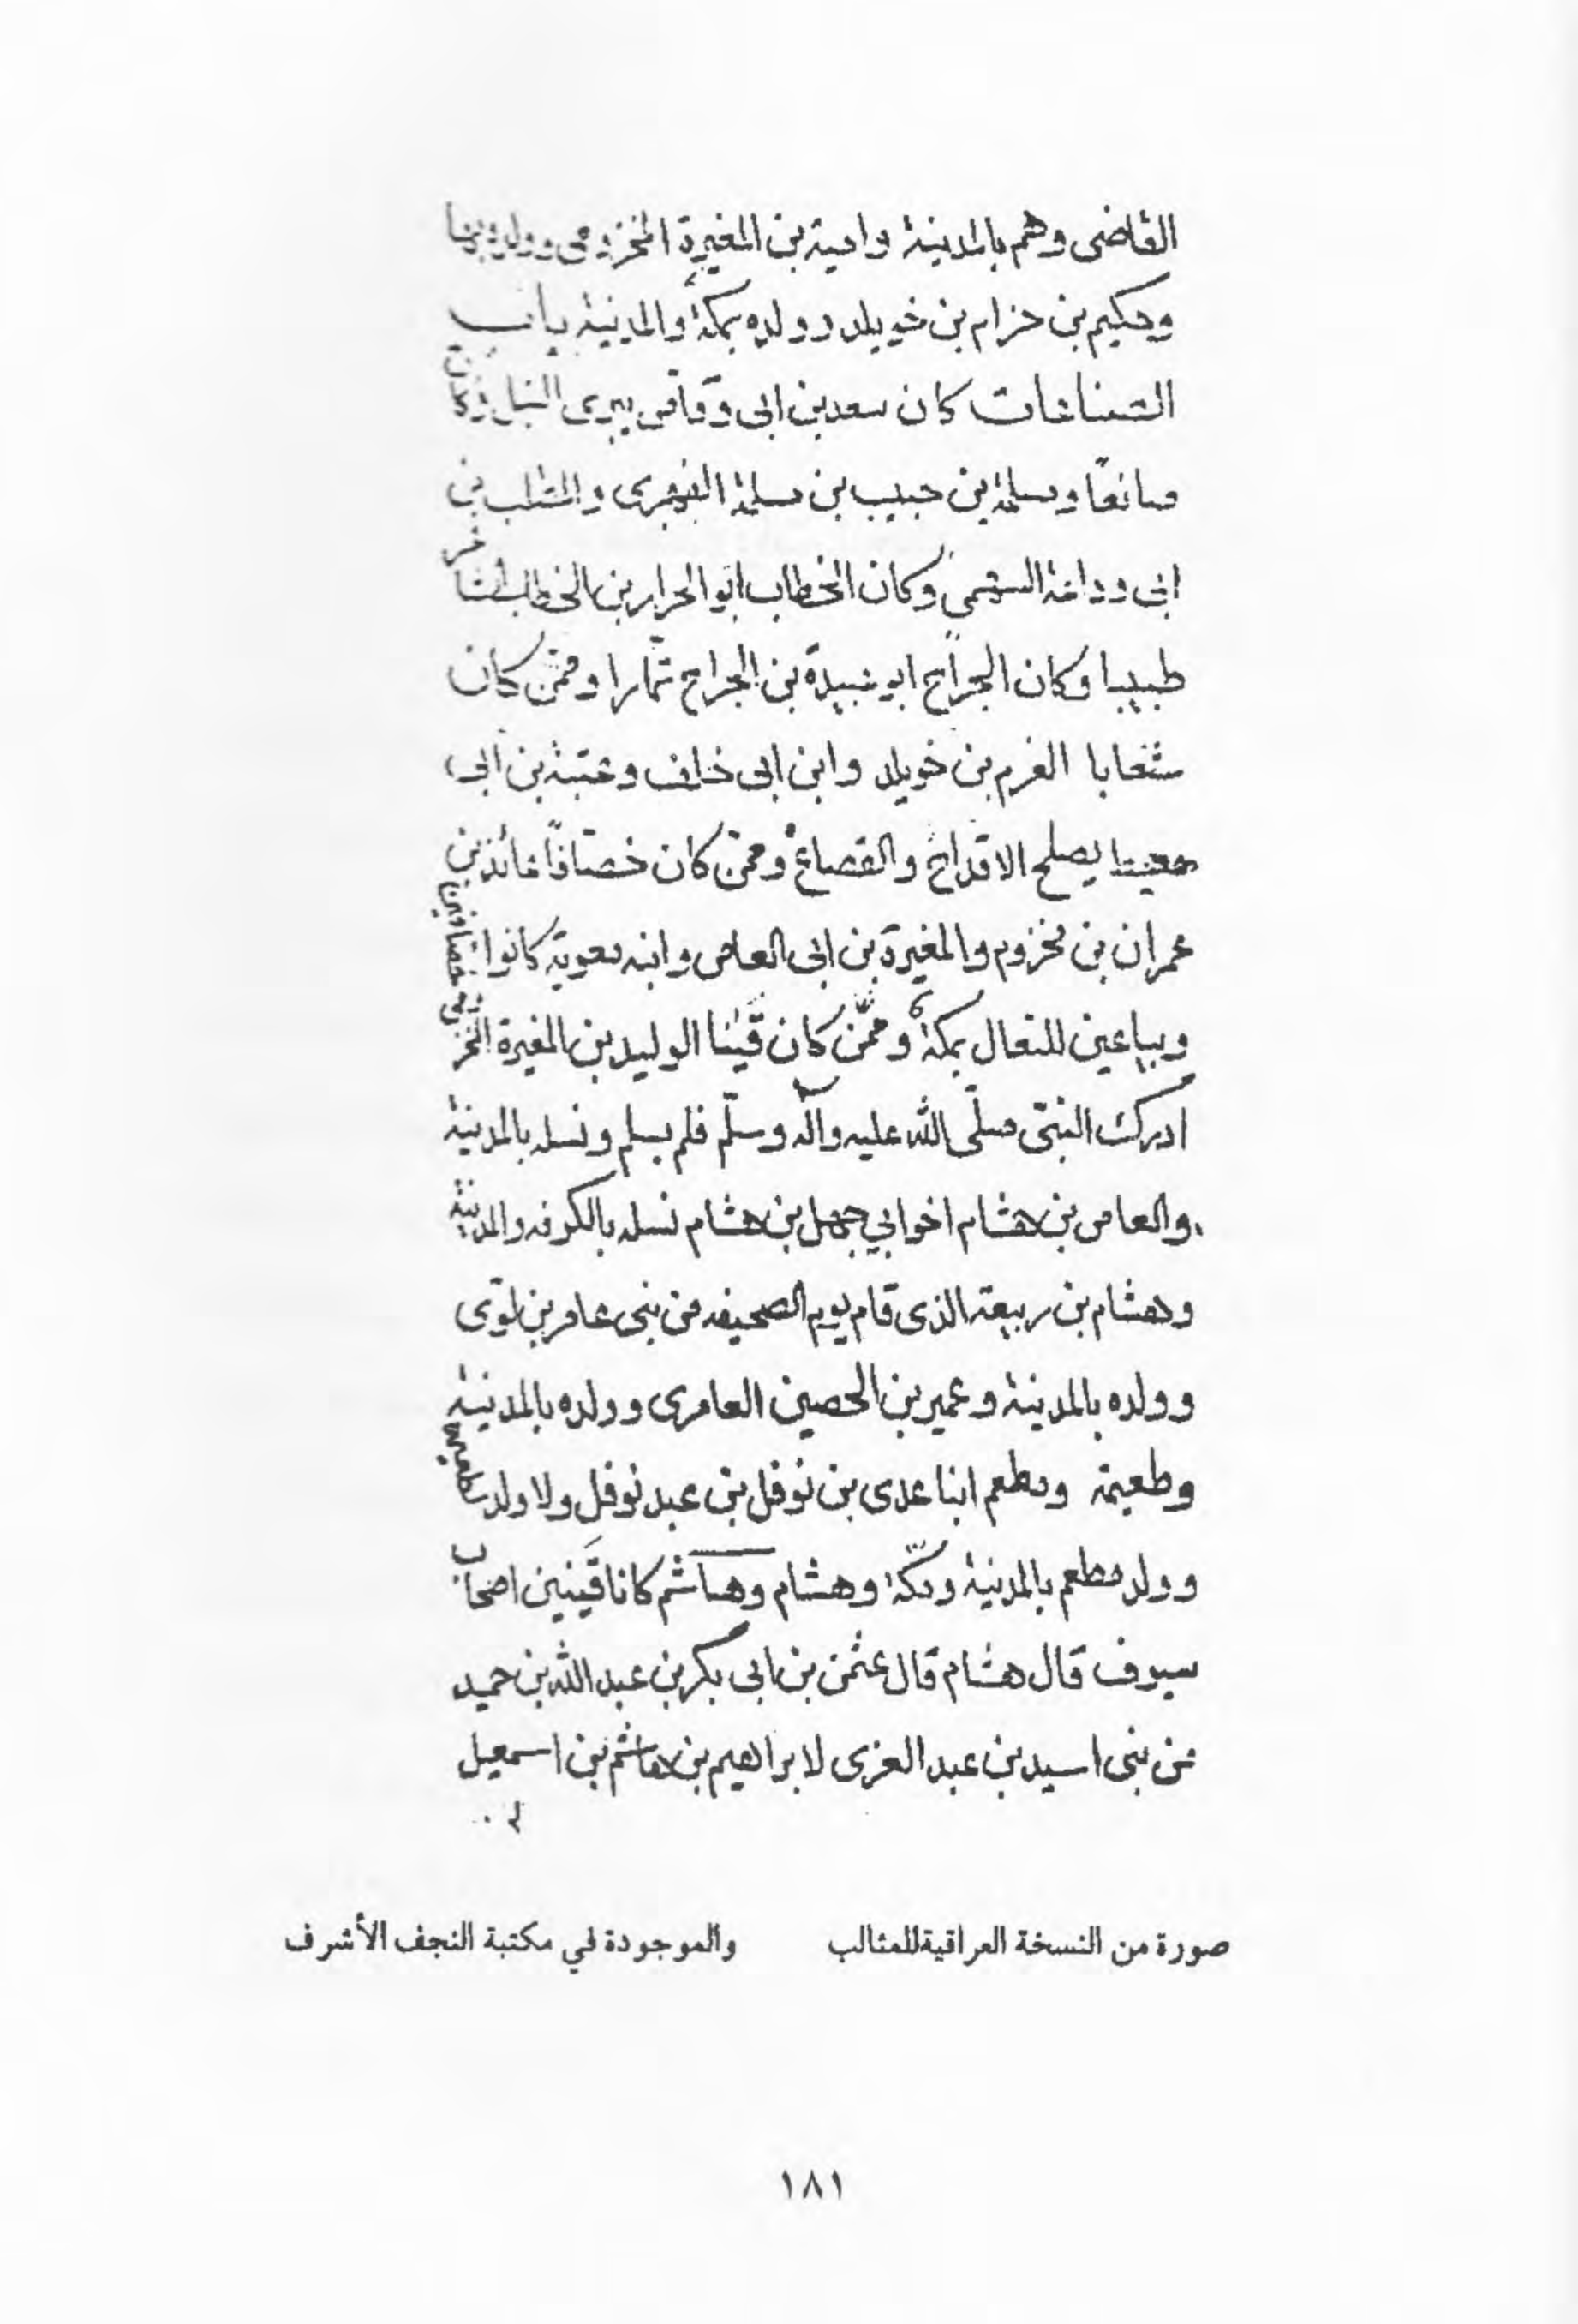 القاضى وهم بالمدينة وامية بن المغيرة المخزومى وولده بها
وحكيم بن حزام بن خويلد وولده بمكة والمدينة باب
الصناعات كان سعد بن ابى وقاص يبرى النبل وكان
صانعًا ومسلمة بن حبيب بن مسلمة الفهرى والمطلب بن
ابى وداعة السهمى وكان الخطاب ابو الحرار بن الخطاب
طبيبا وكان الجراح ابو عبيدة بن الجراح تمارا وممن كان
شعابا العزم بن خويلد وابن ابى خلف وعتبة بن ابى
معيط يصلح الاقداح والقصاع وممن كان خصافًا عائذ بن
عمران بن مخزوم والمغيرة بن ابى العاص وابنه معوية كانوا خصافين
وبياعين للنعال بمكة وممّن كان قَينا الوليد بن المغيرة المخزومى
ادرك النبىّ صلّى الله عليه وآله وسلّم فلم يسلم ونسله بالمدينة
والعاص بن هشام اخو ابي جهل بن هشام نسله بالكوفه والمدينة
وهشام بن ربيعة الذى قام يوم الصحيفه من بنى عامر بن لؤى
وولده بالمدينة وعمير بن الحصين العامرى وولده بالمدينة
وطعيمة ومطعم ابنا عدى بن نوفل بن عبد نوفل ولا ولد لطعيمة
وولد مطعم بالمدينة ومكة وهشام وهاشم كانا قَينين اصحاب
سيوف قال هشام قال عثمن بن ابى بكر بن عبد الله بن حميد
من بنى اسيد بن عبد العزى لابراهيم بن هاشم بن اسمعيل
صورة من النسخة العراقية للمثالب والموجودة في مكتبة النجف الأشرف
١٨١